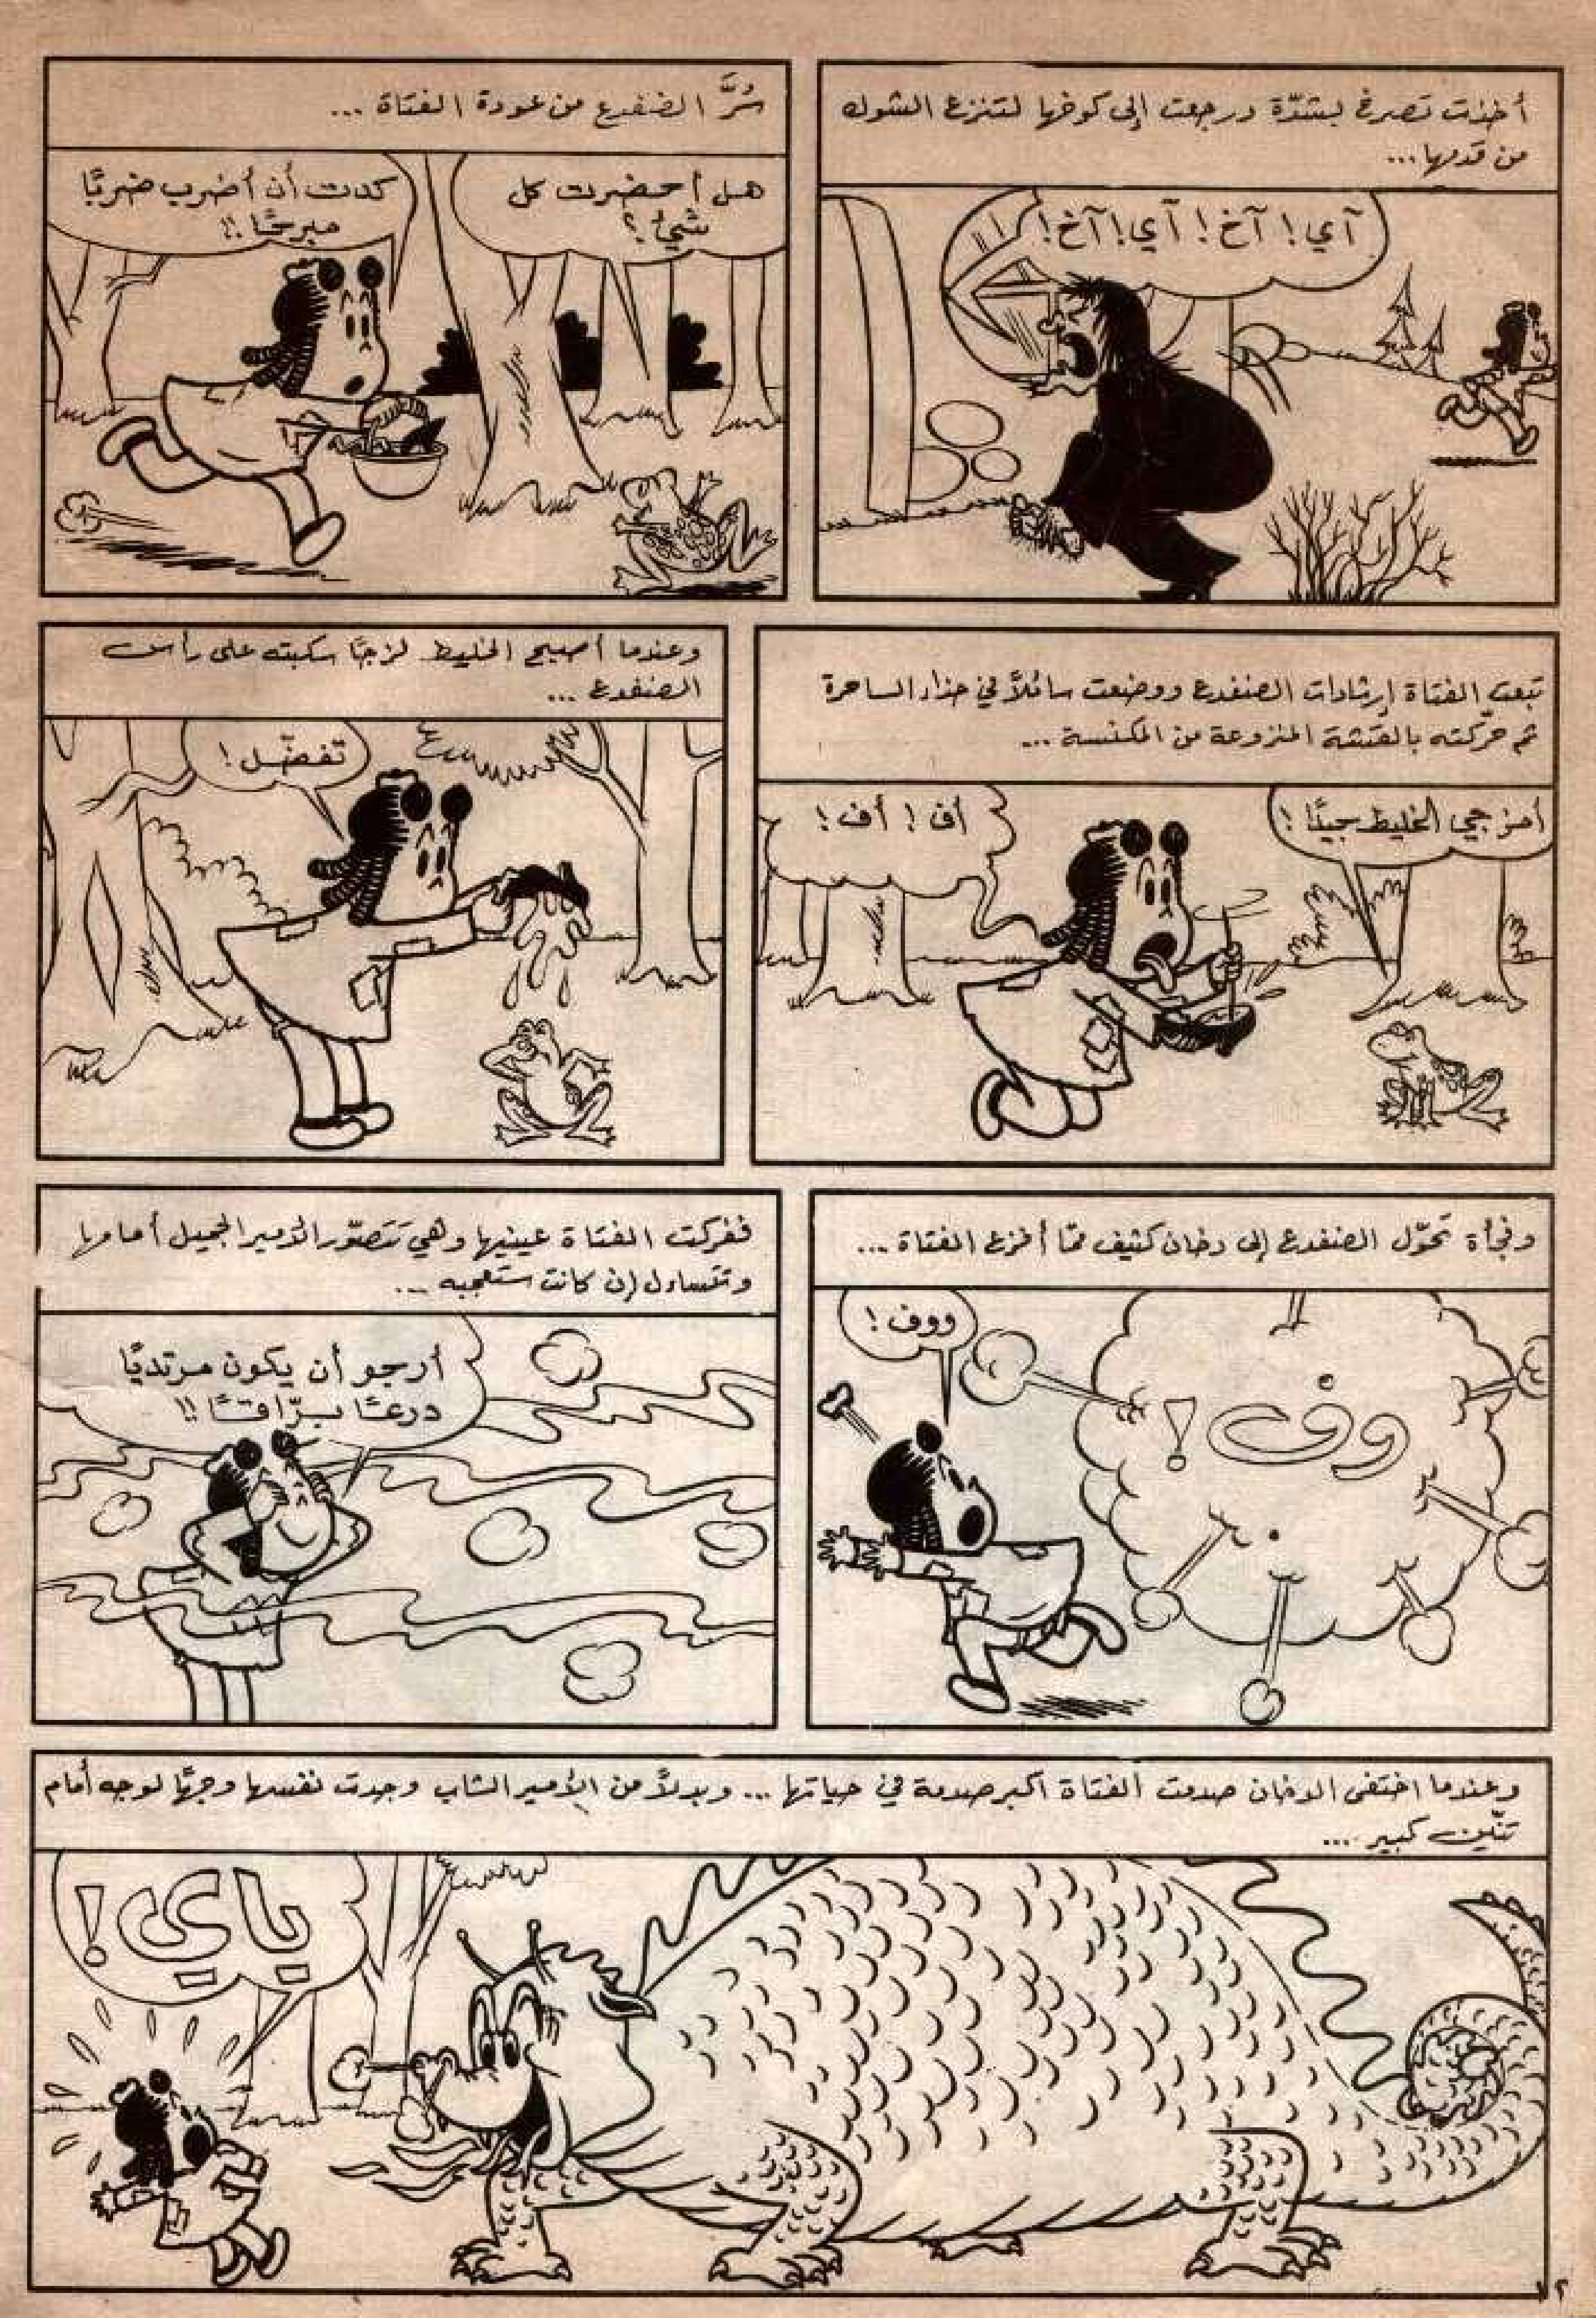 أخذت تصرخ بشدّة ورجعت إلى كوخها لتنزع الشوك
من قدمها...
آي! آخ! آي! آخ!
سُرَّ الضفدع من عودة الفتاة ...
هل أحضرت كل
شيئ؟
كدت أن أضرب ضربًا
مبرحًا!!
تبعت الفتاة إرشادات الضفدع ووضعت سائلاً في حذاء الساحرة
ثم حرّكته بالقشة المنزوعة من المكنسة ...
أمزجي الخليط جيدًا!
أف! أف!
وعندما أصبح الخليط لزجًا سكبته على رأس
الضفدع ...
تفضّل!
وفجأة تحوّل الضفدع إلى دخان كثيف ممّا أفزع الفتاة ...
ووف!
وف!
ففركت الفتاة عينيها وهي تتصوّر الأمير الجميل أمامها
وتتساءل إن كانت ستعجبه ...
أرجو أن يكون مرتديًا
درعًا برّاقًا!!
وعندما اختفى الدخان صدمت الفتاة اكبر صدمة في حياتها ... وبدلاً من الأمير الشاب وجدت نفسها وجهًا لوجه أمام
تنّين كبير ...
ياي!